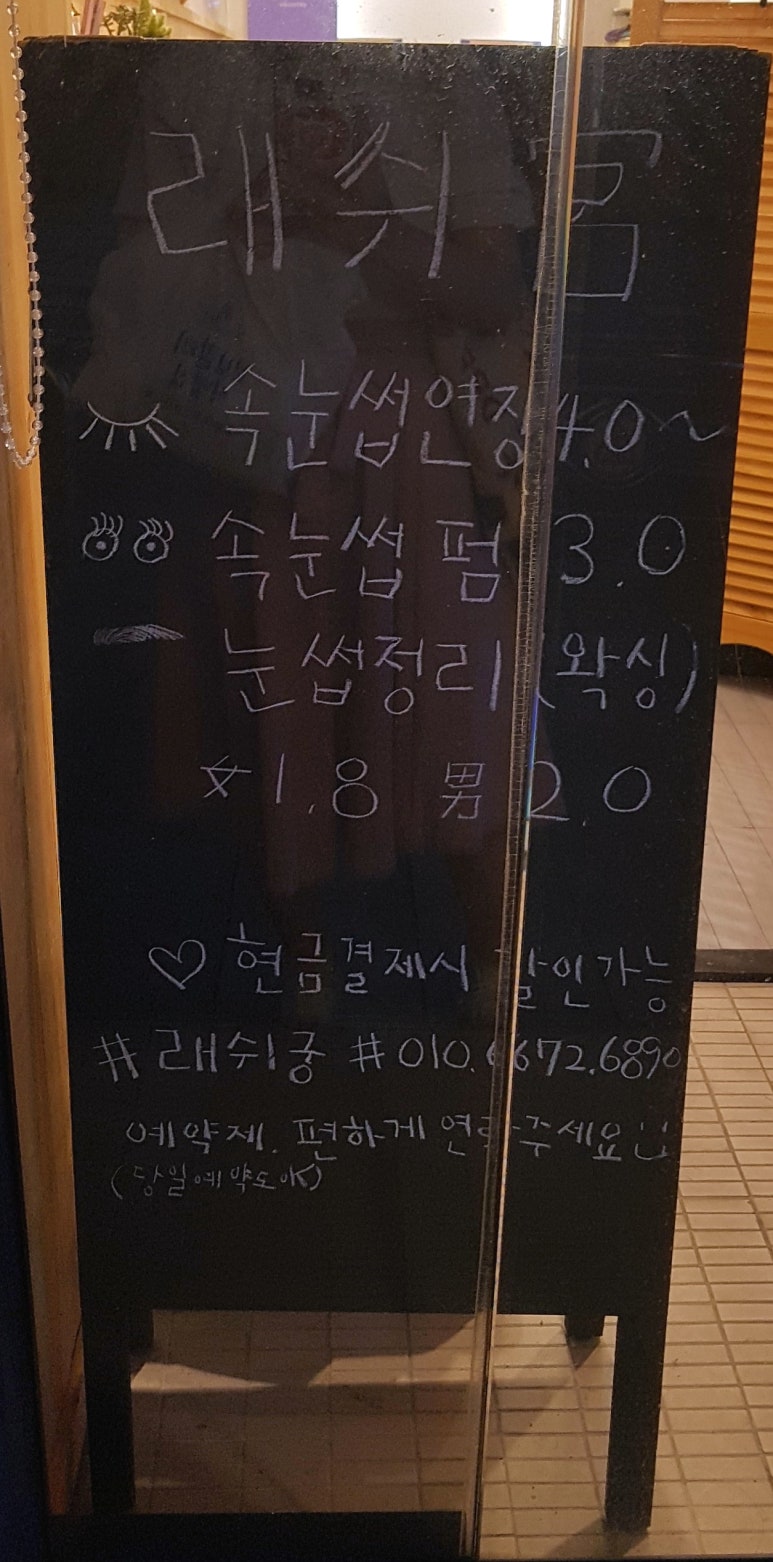 래쉬宮
속눈썹연장 4.0~
속눈썹 펌 3.0
눈썹정리 (왁싱)
女1.8 男 2.0
♡ 현금결제시 할인가능
#래쉬궁 #010.6672.6890
예약제. 편하게 연락주세요
(당일예약도 OK)